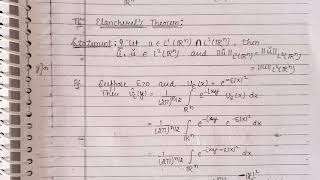 Th^m Plancherel's Theorem:
Statement: If Let u ∈ L¹(ℝⁿ) ∩ L²(ℝⁿ), then
û, ǔ ∈ L²(ℝⁿ) and ||û||_{L²(ℝⁿ)} = ||ǔ||_{L²(ℝⁿ)}
= ||u||_{L²(ℝⁿ)}
Pf Suppose ε>0 and v_ε(x) = e^{-ε|x|²}
Then v̂_ε(y) = 1/(2π)^{n/2} ∫_{ℝⁿ} e^{-ixy} v_ε(x) dx
= 1/(2π)^{n/2} ∫_{ℝⁿ} e^{-ixy} e^{-ε|x|²} dx
= 1/(2π)^{n/2} ∫_{ℝⁿ} e^{-(ixy+ε|x|²)} dx